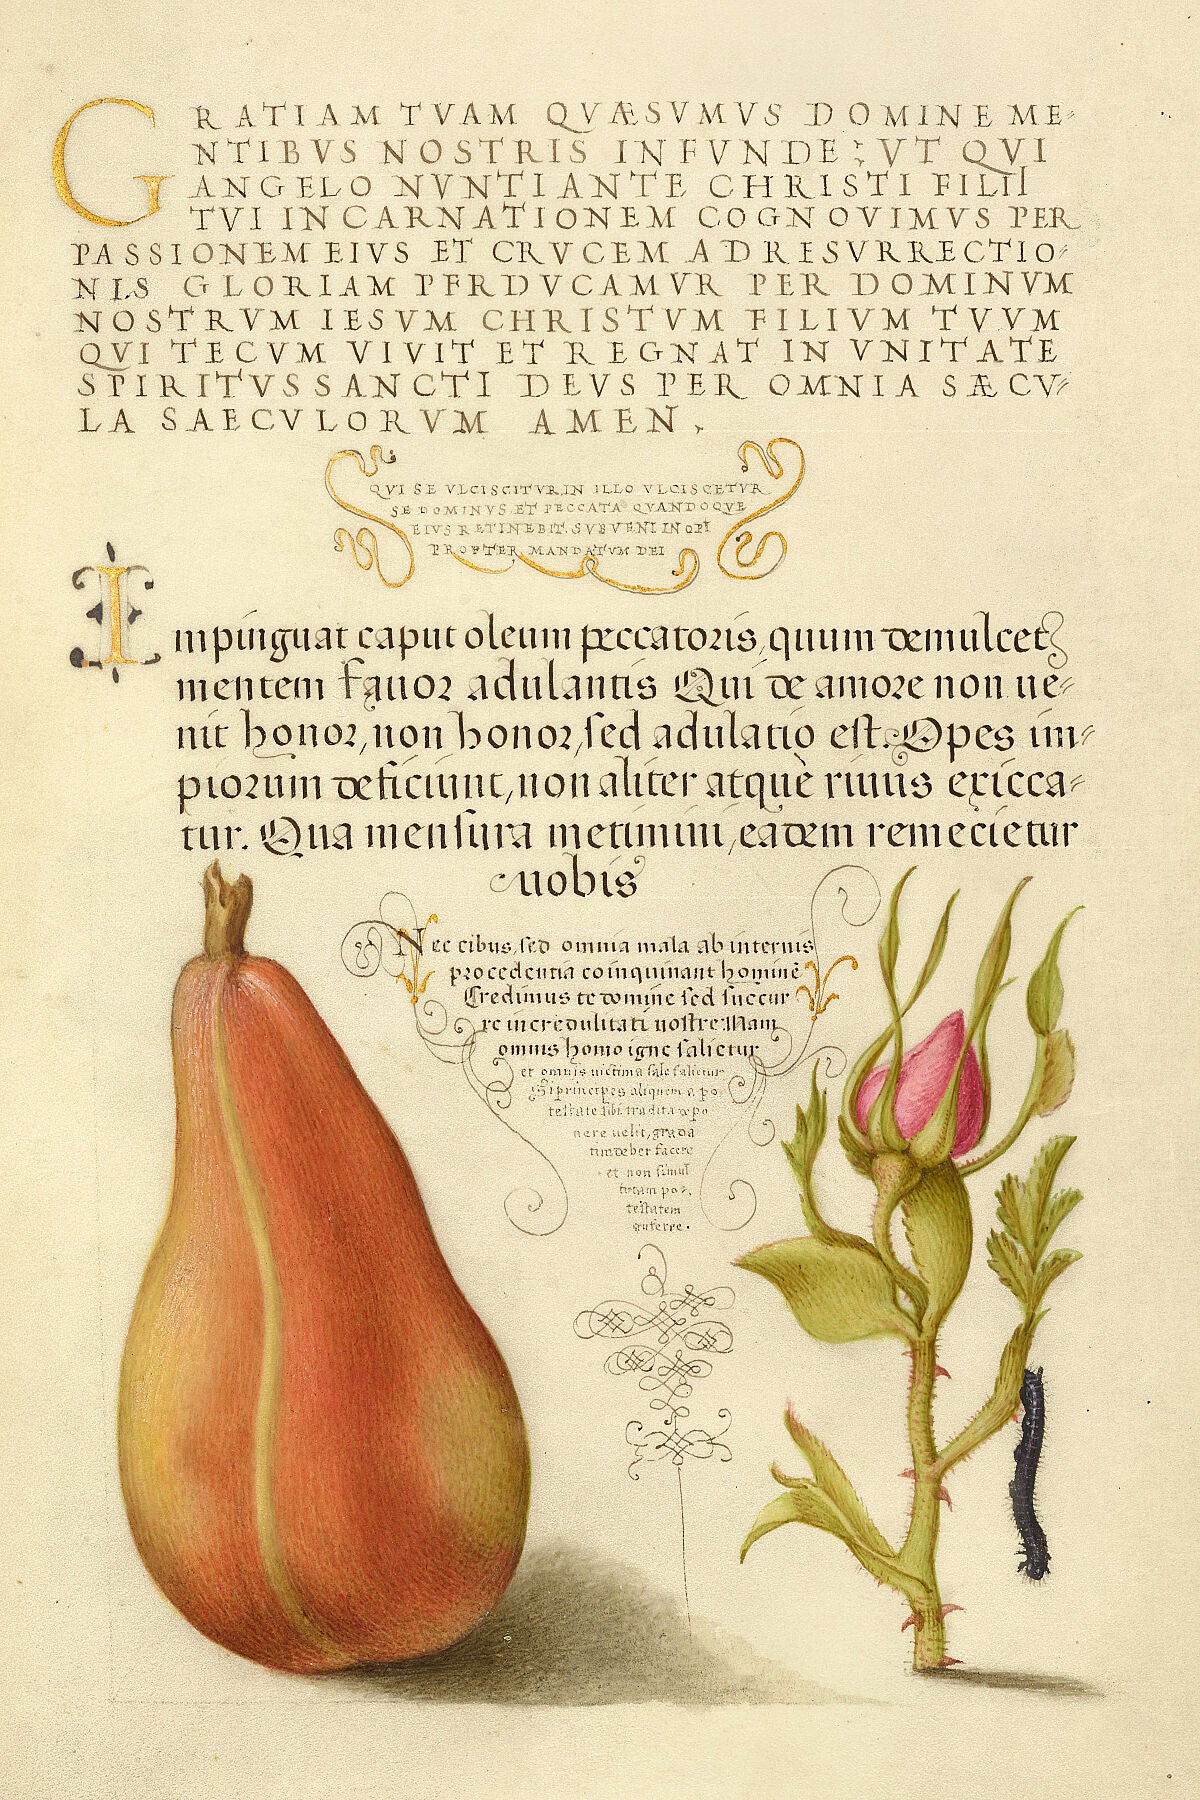 GRATIAM TVAM QVÆSVMVS DOMINE ME-
NTIBVS NOSTRIS INFVNDE: VT QVI
ANGELO NVNTIANTE CHRISTI FILII
TVI INCARNATIONEM COGNOVIMVS PER
PASSIONEM EIVS ET CRVCEM AD RESVRRECTIO-
NIS GLORIAM PERDVCAMVR PER DOMINVM
NOSTRVM IESVM CHRISTVM FILIVM TVVM
QVI TECVM VIVIT ET REGNAT IN VNITATE
SPIRITVS SANCTI DEVS PER OMNIA SÆCV-
LA SAECVLORVM AMEN.
QVI SE VLCISCITVR, IN ILLO VLCISCETVR
SE DOMINVS, ET PECCATA QVANDOQVE
EIVS RETINEBIT. SVBVENI INOPI
PROPTER MANDATVM DEI
Impinguat caput oleum peccatoris, quum demulcet
mentem favor adulantis Qui de amore non ve-
nit honor, non honor, sed adulatio est. Opes im-
piorum deficiunt, non aliter atquè rivus exicca-
tur. Qua mensura metimini, eadem remecietur
vobis
Nec cibus, sed omnia mala ab internis
procedentia coinquinant hominē
Credimus te domine sed succur
re incredulitati nostre. Nam
omnis homo igne salietur
et omnis victima sale salietur
Si principes aliquem a po
testate sibi tradita depo
nere velit, grada
tim deber facere
et non simul
totam po-
testatem
auferre.